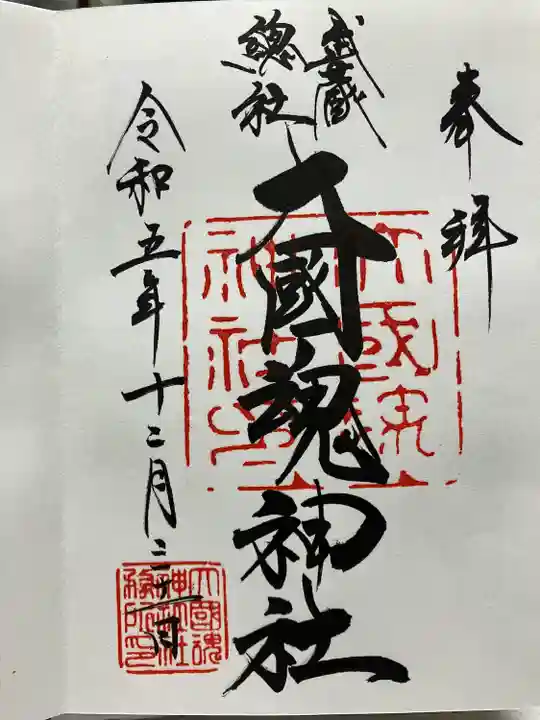 奉拝
武蔵
總社
大國魂神社
令和五年十二月三十一日
大國魂
神社社
務所印